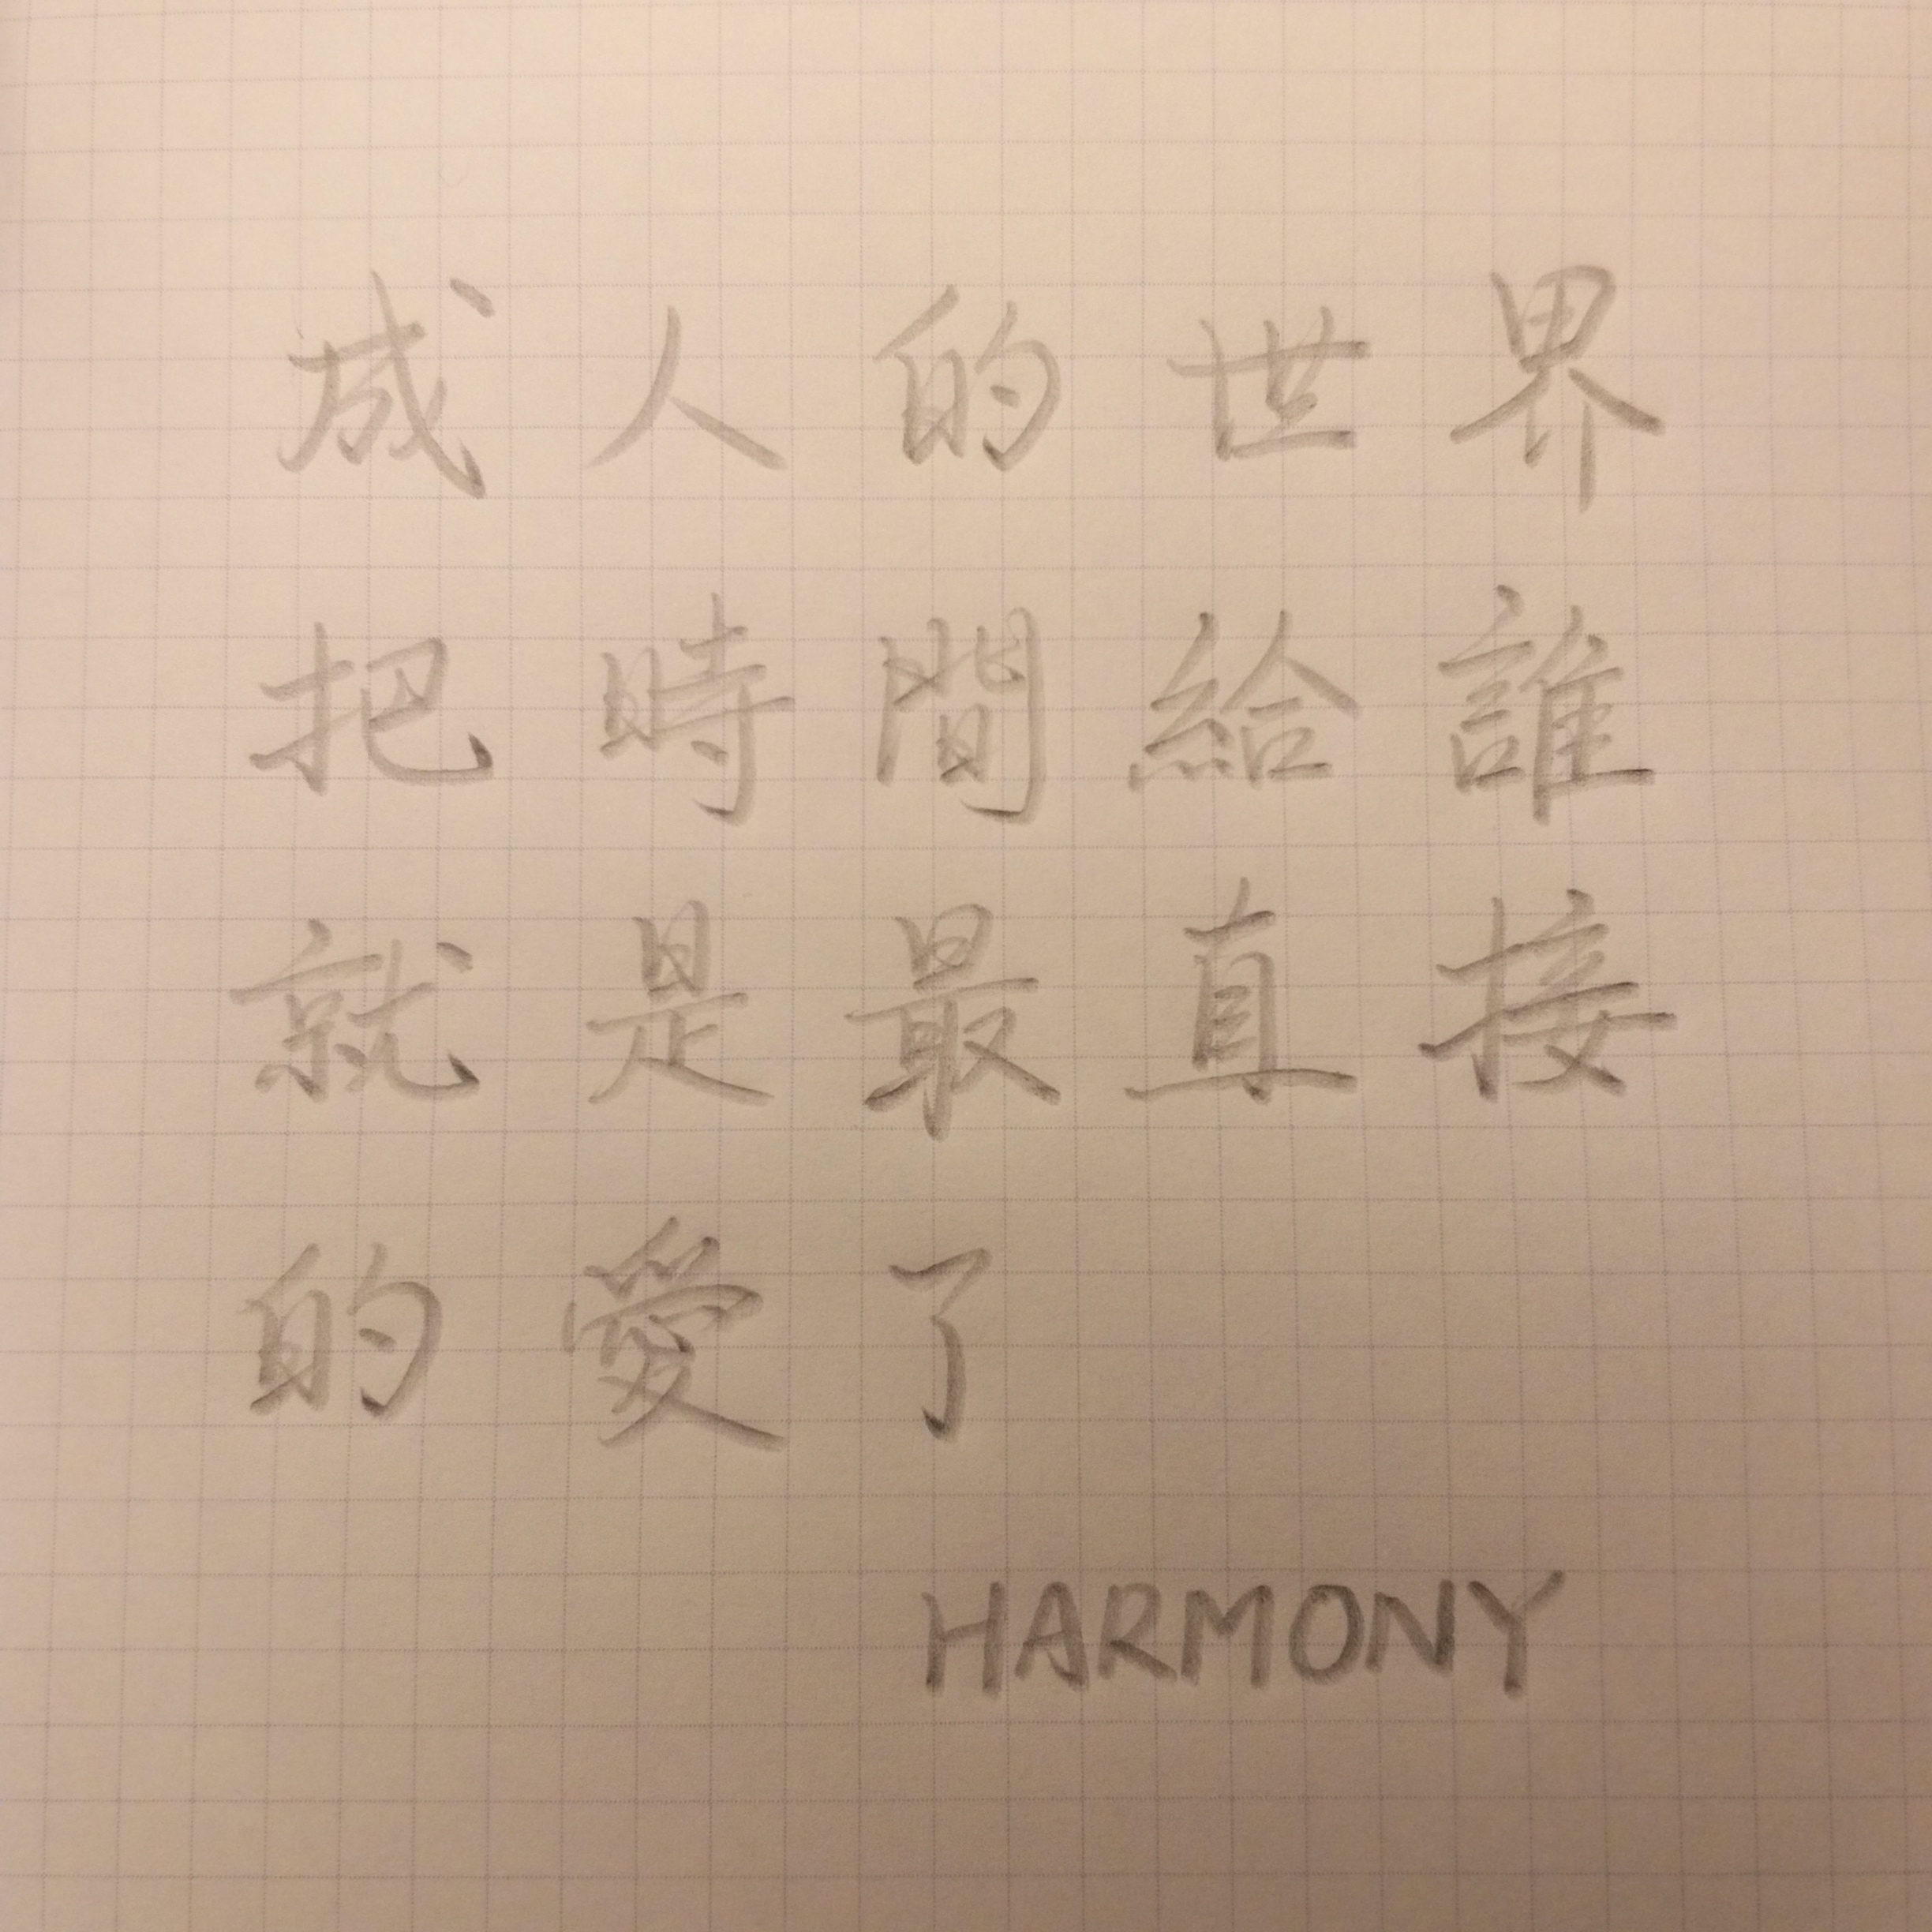 成人的世界
把時間給誰
就是最直接
的愛了
HARMONY